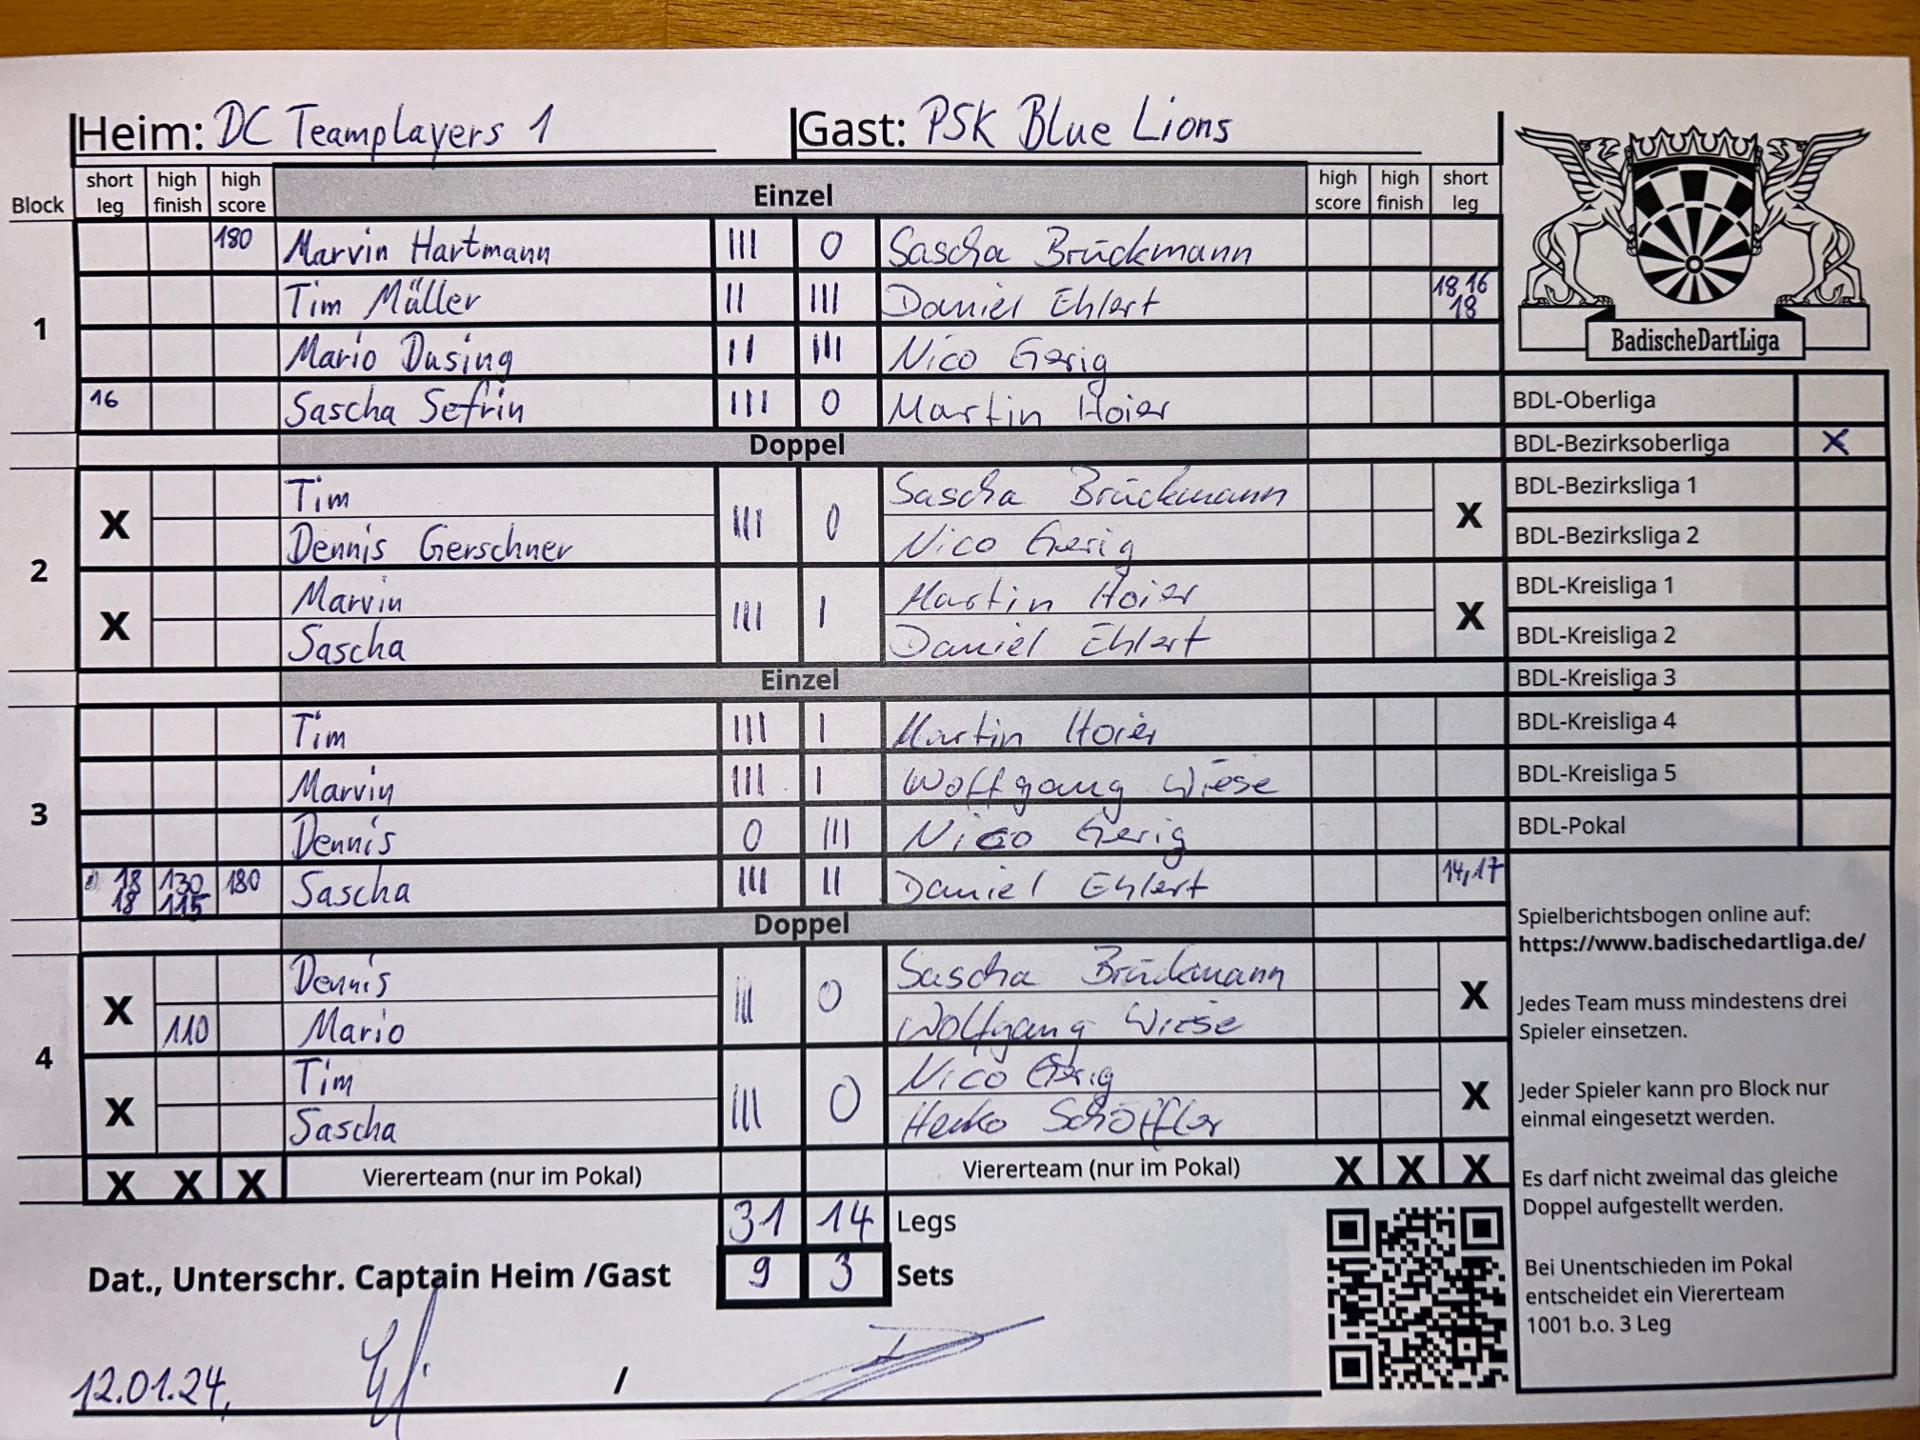 Heim: DC Teamplayers 1 Gast: PSK Blue Lions
Block short leg high finish high score Einzel high score high finish short leg
1
180 Marvin Hartmann III 0 Sascha Brückmann
Tim Müller II III Daniel Ehlert 18, 16 18
Mario Dusing II III Nico Gerig
16 Sascha Sefrin III 0 Martin Hoier
Doppel
2
X Tim III 0 Sascha Brückmann X
Dennis Gerschner Nico Gerig
X Marvin III I Martin Hoier X
Sascha Daniel Ehlert
Einzel
3
Tim III I Martin Hoier
Marvin III I Wolfgang Wiese
Dennis 0 III Nico Gerig
18 18 130 115 180 Sascha III II Daniel Ehlert 14, 17
Doppel
4
X Dennis III 0 Sascha Brückmann X
110 Mario Wolfgang Wiese
X Tim III 0 Nico Gerig X
Sascha Heiko Schöffler
X X X Viererteam (nur im Pokal) Viererteam (nur im Pokal) X X X
31 14 Legs
Dat., Unterschr. Captain Heim /Gast 9 3 Sets
12.01.24, /
BadischeDartLiga
BDL-Oberliga
BDL-Bezirksoberliga X
BDL-Bezirksliga 1
BDL-Bezirksliga 2
BDL-Kreisliga 1
BDL-Kreisliga 2
BDL-Kreisliga 3
BDL-Kreisliga 4
BDL-Kreisliga 5
BDL-Pokal
Spielberichtsbogen online auf:
https://www.badischedartliga.de/
Jedes Team muss mindestens drei
Spieler einsetzen.
Jeder Spieler kann pro Block nur
einmal eingesetzt werden.
Es darf nicht zweimal das gleiche
Doppel aufgestellt werden.
Bei Unentschieden im Pokal
entscheidet ein Viererteam
1001 b.o. 3 Leg